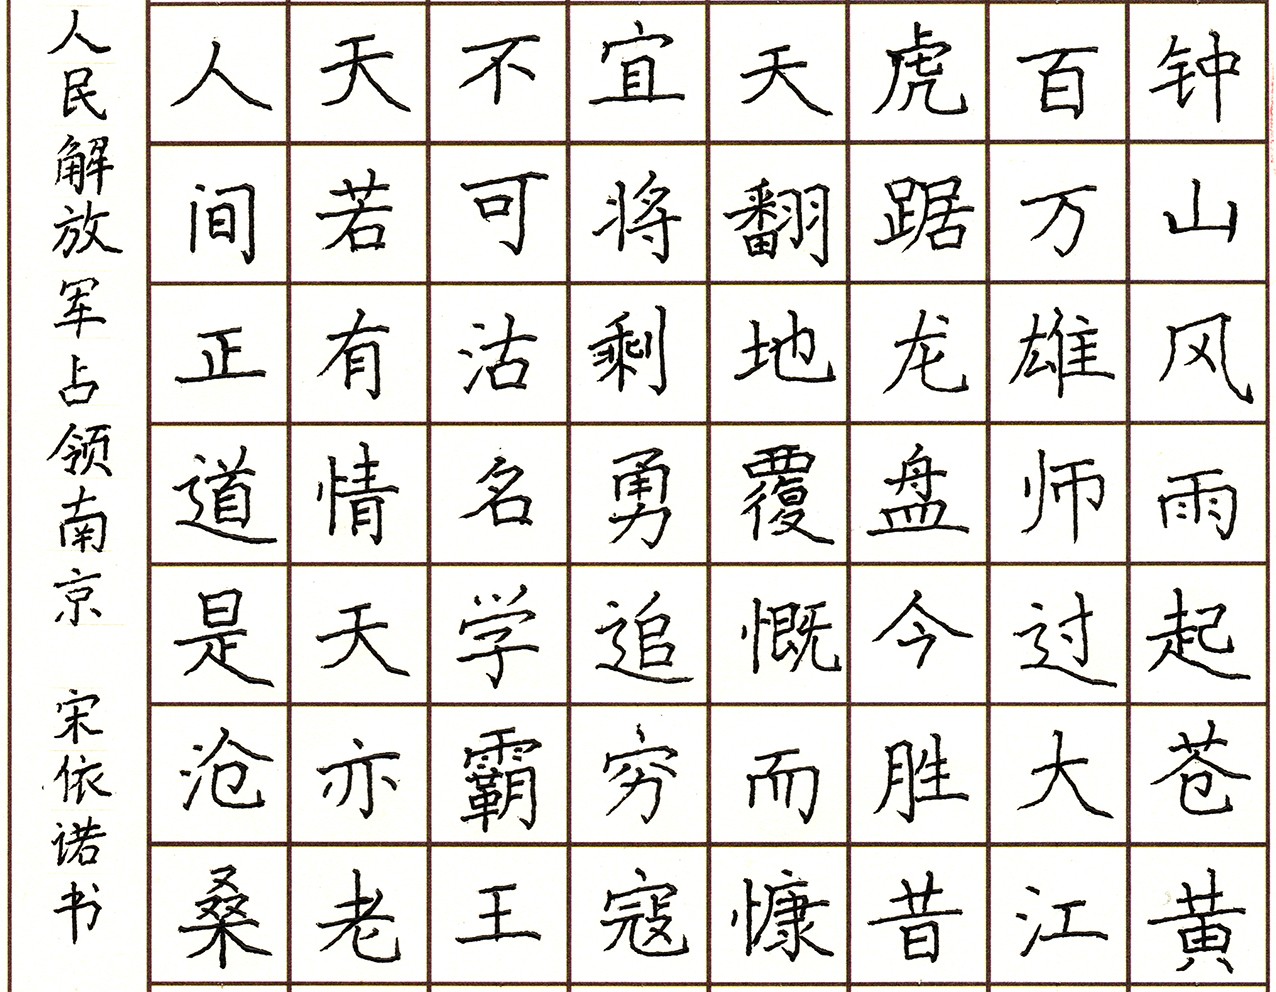 钟山风雨起苍黄
百万雄师过大江
虎踞龙盘今胜昔
天翻地覆慨而慷
宜将剩勇追穷寇
不可沽名学霸王
天若有情天亦老
人间正道是沧桑
人民解放军占领南京 宋依诺书